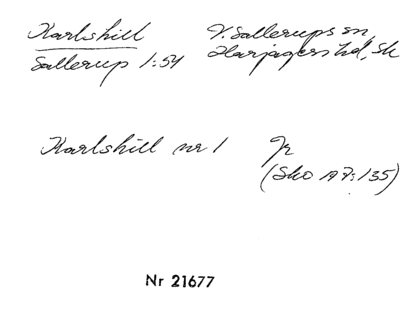 Karlshill V. Sallerups sn,
Sallerup 1:54 Harjagers hd, Sk
Karlshill nr 1 Jr
(SkO A7:135)
Nr 21677